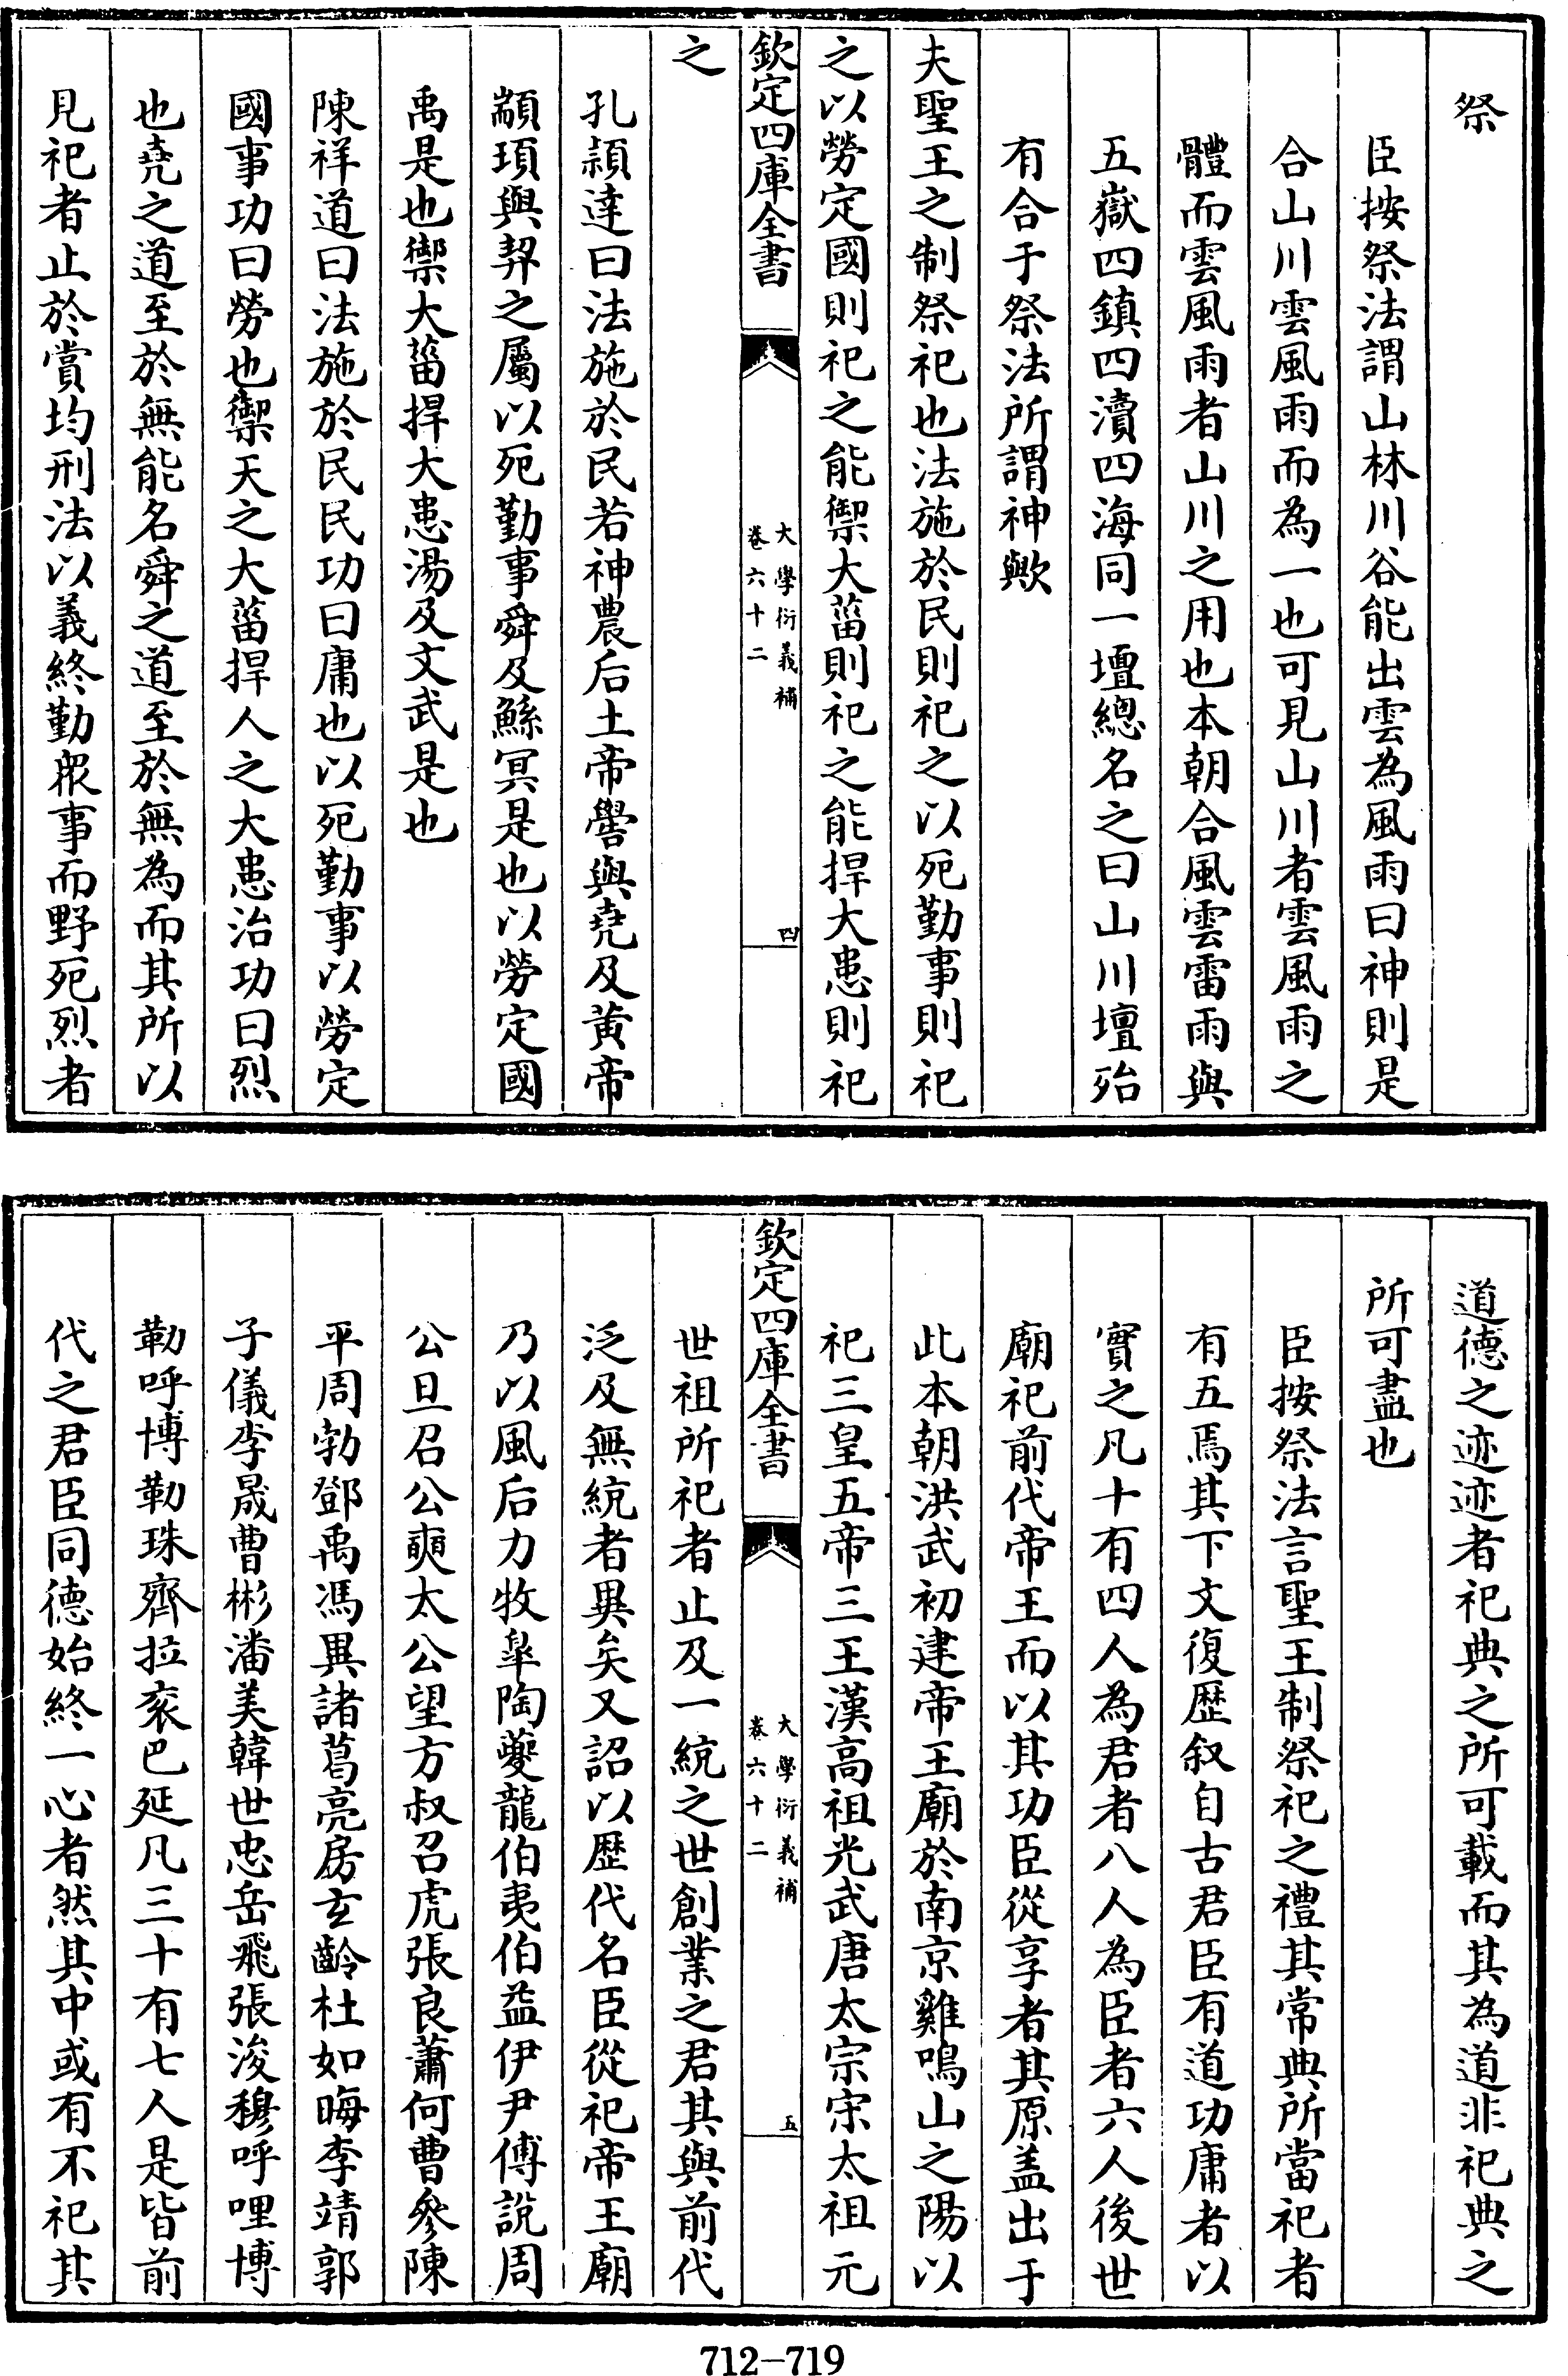 祭
臣按祭法謂山林川谷能出雲為風雨曰神則是
合山川雲風雨而為一也可見山川者雲風雨之
體而雲風雨者山川之用也本朝合風雲雷雨與
五嶽四鎮四瀆四海同一壇總名之曰山川壇殆
有合于祭法所謂神歟
夫聖王之制祭祀也法施於民則祀之以死勤事則祀
之以勞定國則祀之能禦大菑則祀之能捍大患則祀
欽定四庫全書
大學衍義補
卷六十二
四
之
孔穎達曰法施於民若神農后土帝嚳與堯及黃帝
顓頊與契之屬以死勤事舜及鯀冥是也以勞定國
禹是也禦大菑捍大患湯及文武是也
陳祥道曰法施於民民功曰庸也以死勤事以勞定
國事功曰勞也禦天之大菑捍人之大患治功曰烈
也堯之道至於無能名舜之道至於無為而其所以
見祀者止於賞均刑法以義終勤眾事而野死烈者
道德之迹迹者祀典之所可載而其為道非祀典之
所可盡也
臣按祭法言聖王制祭祀之禮其常典所當祀者
有五焉其下文復歷叙自古君臣有道功庸者以
實之凡十有四人為君者八人為臣者六人後世
廟祀前代帝王而以其功臣從享者其原盖出于
此本朝洪武初建帝王廟於南京雞鳴山之陽以
祀三皇五帝三王漢高祖光武唐太宗宋太祖元
欽定四庫全書
大學衍義補
卷六十二
五
世祖所祀者止及一統之世創業之君其與前代
泛及無統者異矣又詔以歷代名臣從祀帝王廟
乃以風后力牧臯陶夔龍伯夷伯益伊尹傅說周
公旦召公奭太公望方叔召虎張良蕭何曹參陳
平周勃鄧禹馮異諸葛亮房玄齡杜如晦李靖郭
子儀李晟曹彬潘美韓世忠岳飛張浚穆呼哩博
勒呼博勒珠齊拉衮巴延凡三十有七人是皆前
代之君臣同德始終一心者然其中或有不祀其
712-719